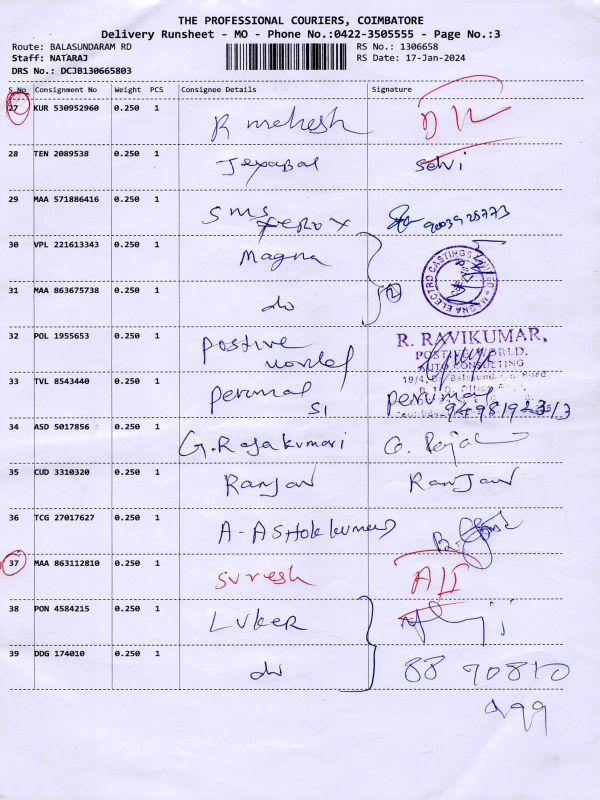 THE PROFESSIONAL COURIERS, COIMBATORE
Delivery Runsheet - MO - Phone No.:0422-3505555 - Page No.:3
Route: BALASUNDARAM RD RS No.: 1306658
Staff: NATARAJ RS Date: 17-Jan-2024
DRS No.: DCJB130665803
S No Consignment No Weight PCS Consignee Details Signature
27 KUR 530952960 0.250 1 R mahesh
28 TEN 2089538 0.250 1 Jeyabal Selvi
29 MAA 571886416 0.250 1 SMS
XEROX
30 VPL 221613343 0.250 1 Magna
MAGNA ELECTRO CASTINGS LIMITED
31 MAA 863675738 0.250 1 do 2
32 POL 1955653 0.250 1 Positive
World
R. RAVIKUMAR,
POSITIVE WORLD.
AUTO CONSULTING
33 TVL 8543440 0.250 1 Perumal Perumal
SI
34 ASD 5017856 0.250 1 G. Rajakumari G. Raja
35 CUD 3310320 0.250 1 Ranjan Ranjan
36 TCG 27017627 0.250 1 A-Ashokkumar
37 MAA 863112810 0.250 1 Suresh
38 PON 4584215 0.250 1 LUKER
39 DDG 174010 0.250 1 do 88 70810
499